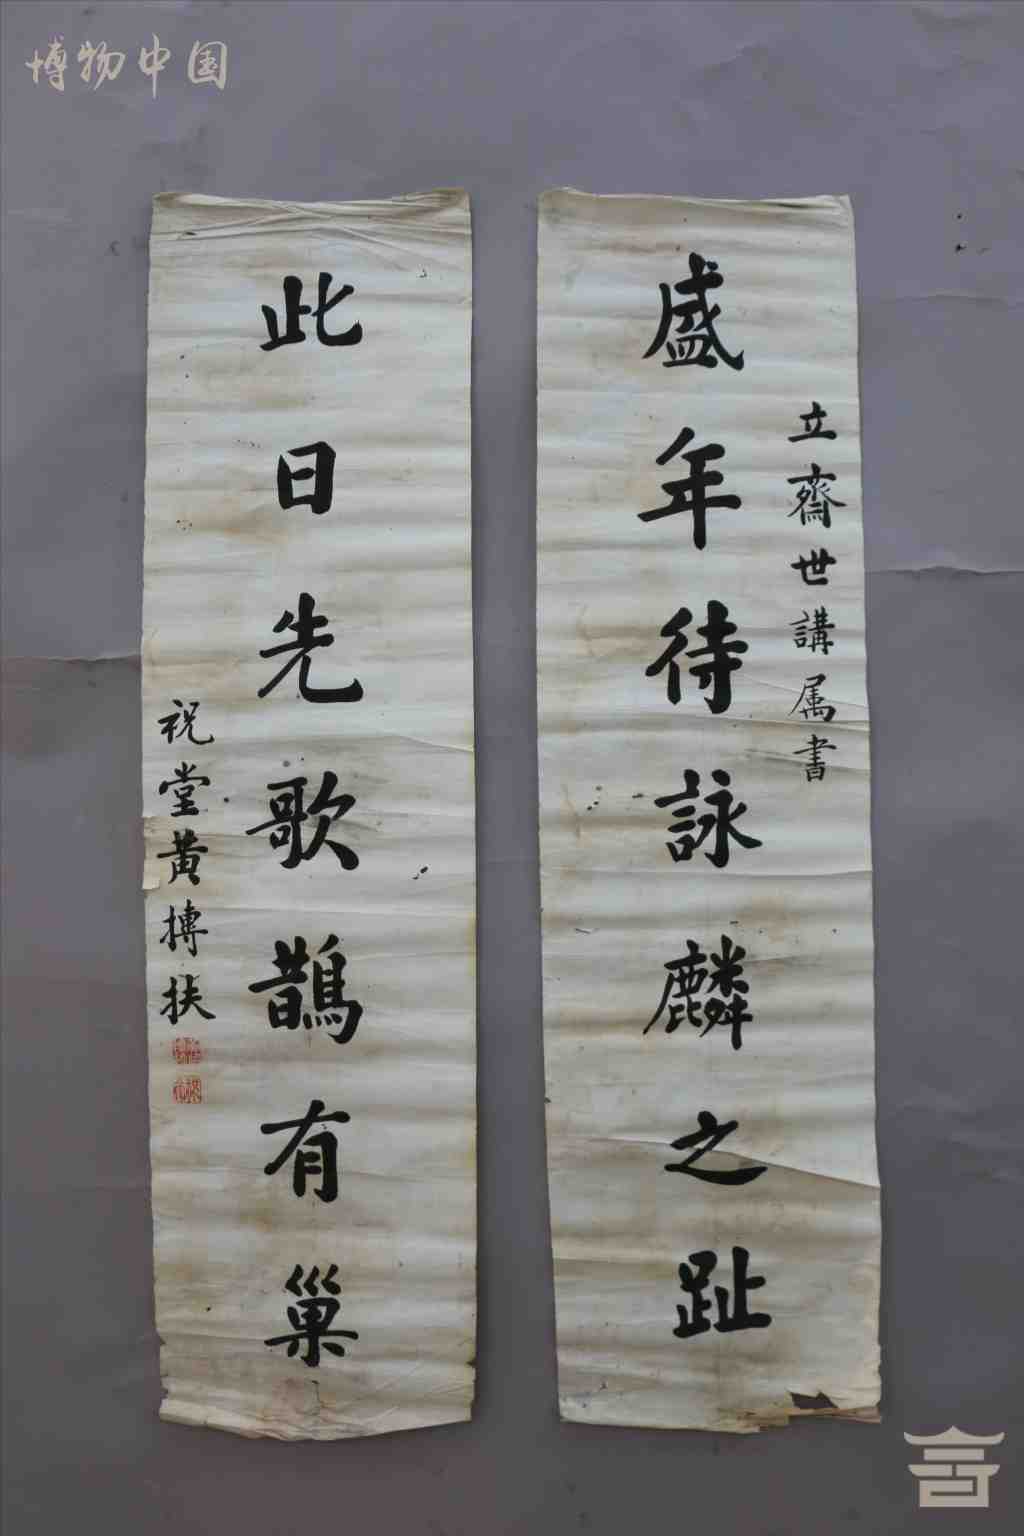 博物中国
盛年待詠麟之趾
立齋世講属書
此日先歌鵲有巢
祝堂黃摶扶